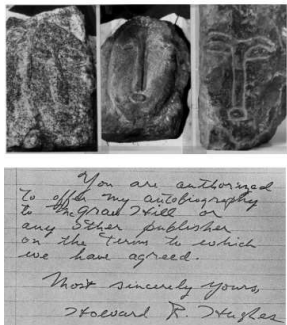 You are authorized
to offer my autobiography
to McGraw Hill or
any other publisher
on the terms to which
we have agreed.
Most sincerely yours,
Howard R. Hughes